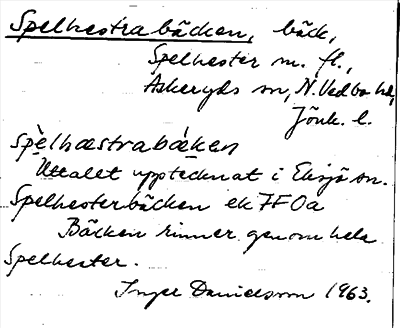 Spelhestrabäcken, bäck,
Spelhester m. fl.,
Askeryds sn, N. Vedbo hd,
Jönk. l.
spè̱lhæstrabǽken
Uttalet upptecknat i Eksjö sn.
Spelhesterbäcken ek 7F0a
Bäcken rinner genom hela
Spelhester.
Inger Danielsson 1963.